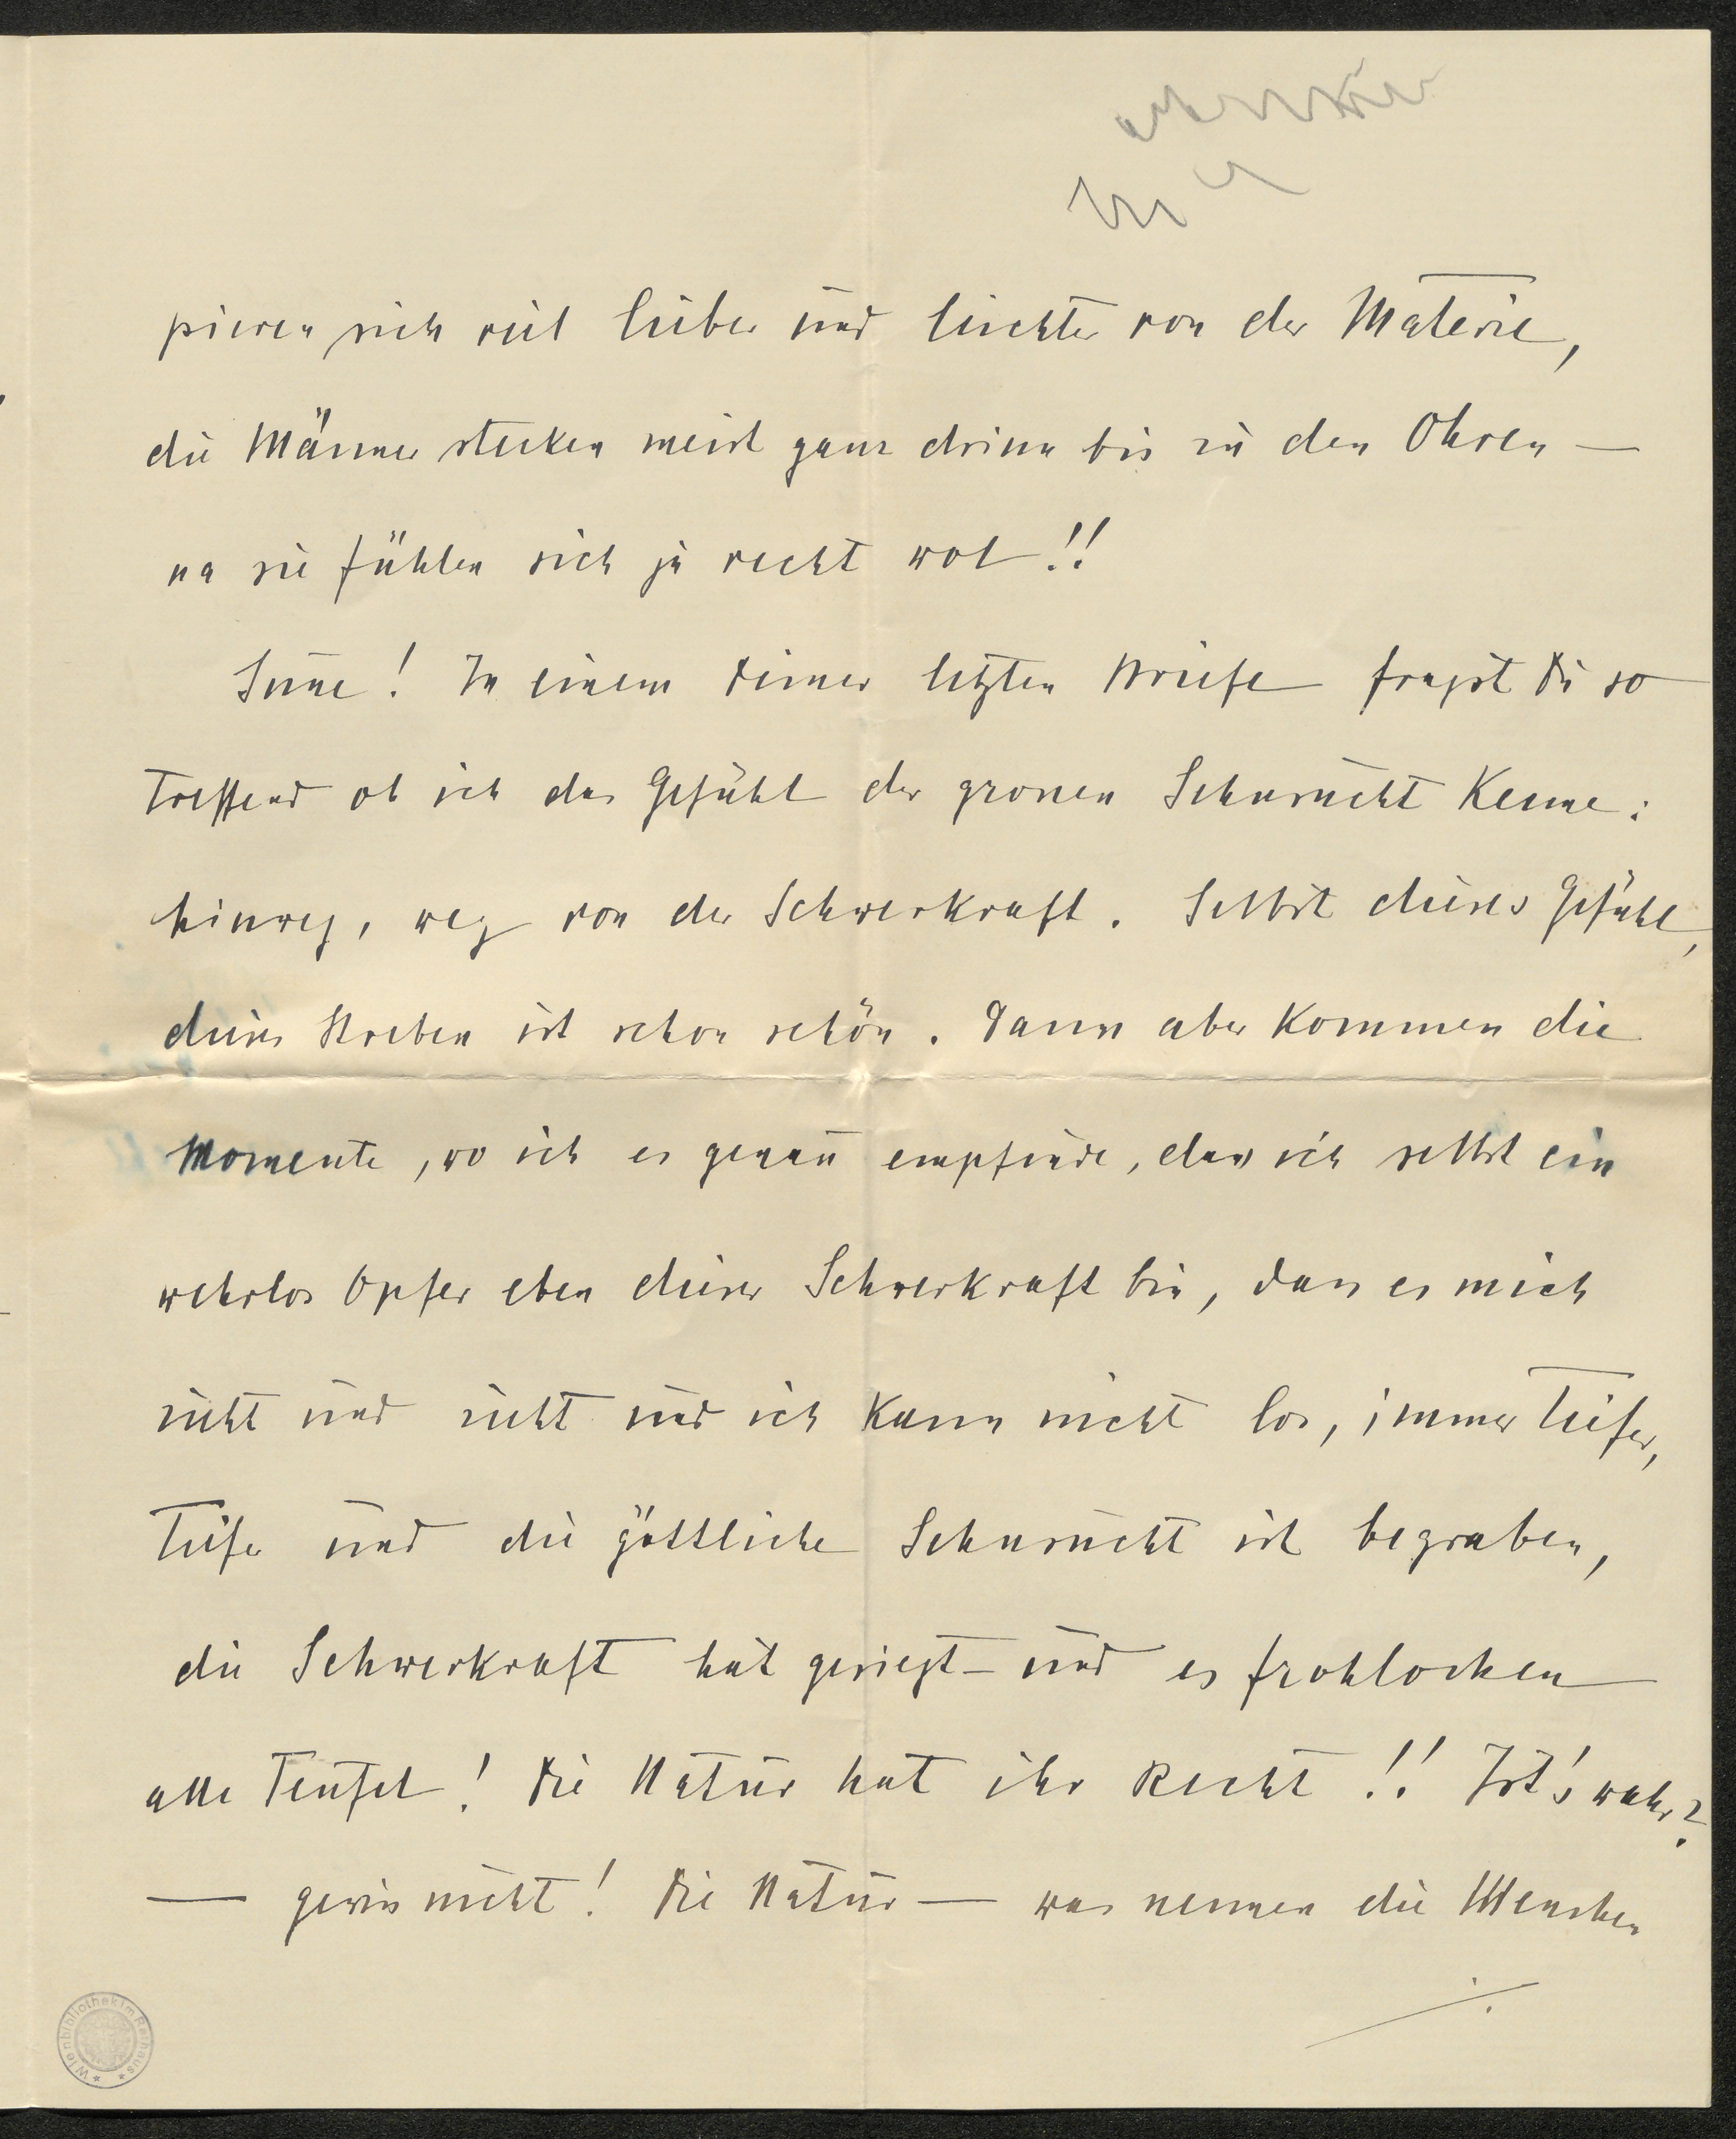 pieren sich viel lieber und leichter von der Materie,
die Männer stecken meist ganz drinn bis zu den Ohren —
na sie fühlen sich ja recht wol!!
! In einem Deiner letzten Briefe fragst Du so
treffend ob ich das Gefühl der grossen Sehnsucht kenne:
hinweg, weg von der Schwerkraft. Selbst dieses Gefühl,
dieses Streben ist schon schön. Dann aber kommen die
Momente, wo ich es genau empfinde, dass ich selbst ein
wehrlos Opfer eben dieser Schwerkraft bin, dass es mich
zieht und zieht und ich kann nicht los, immer tiefer,
tiefer und die göttliche Sehnsucht ist begraben,
die Schwerkraft hat gesiegt — und es frohlocken
alle Teufel! Die Natur hat ihr Recht!! Ist's wahr?
— gewiss nicht! Die Natur — was nennen die Menschen
Wienbibliothek im Rathaus